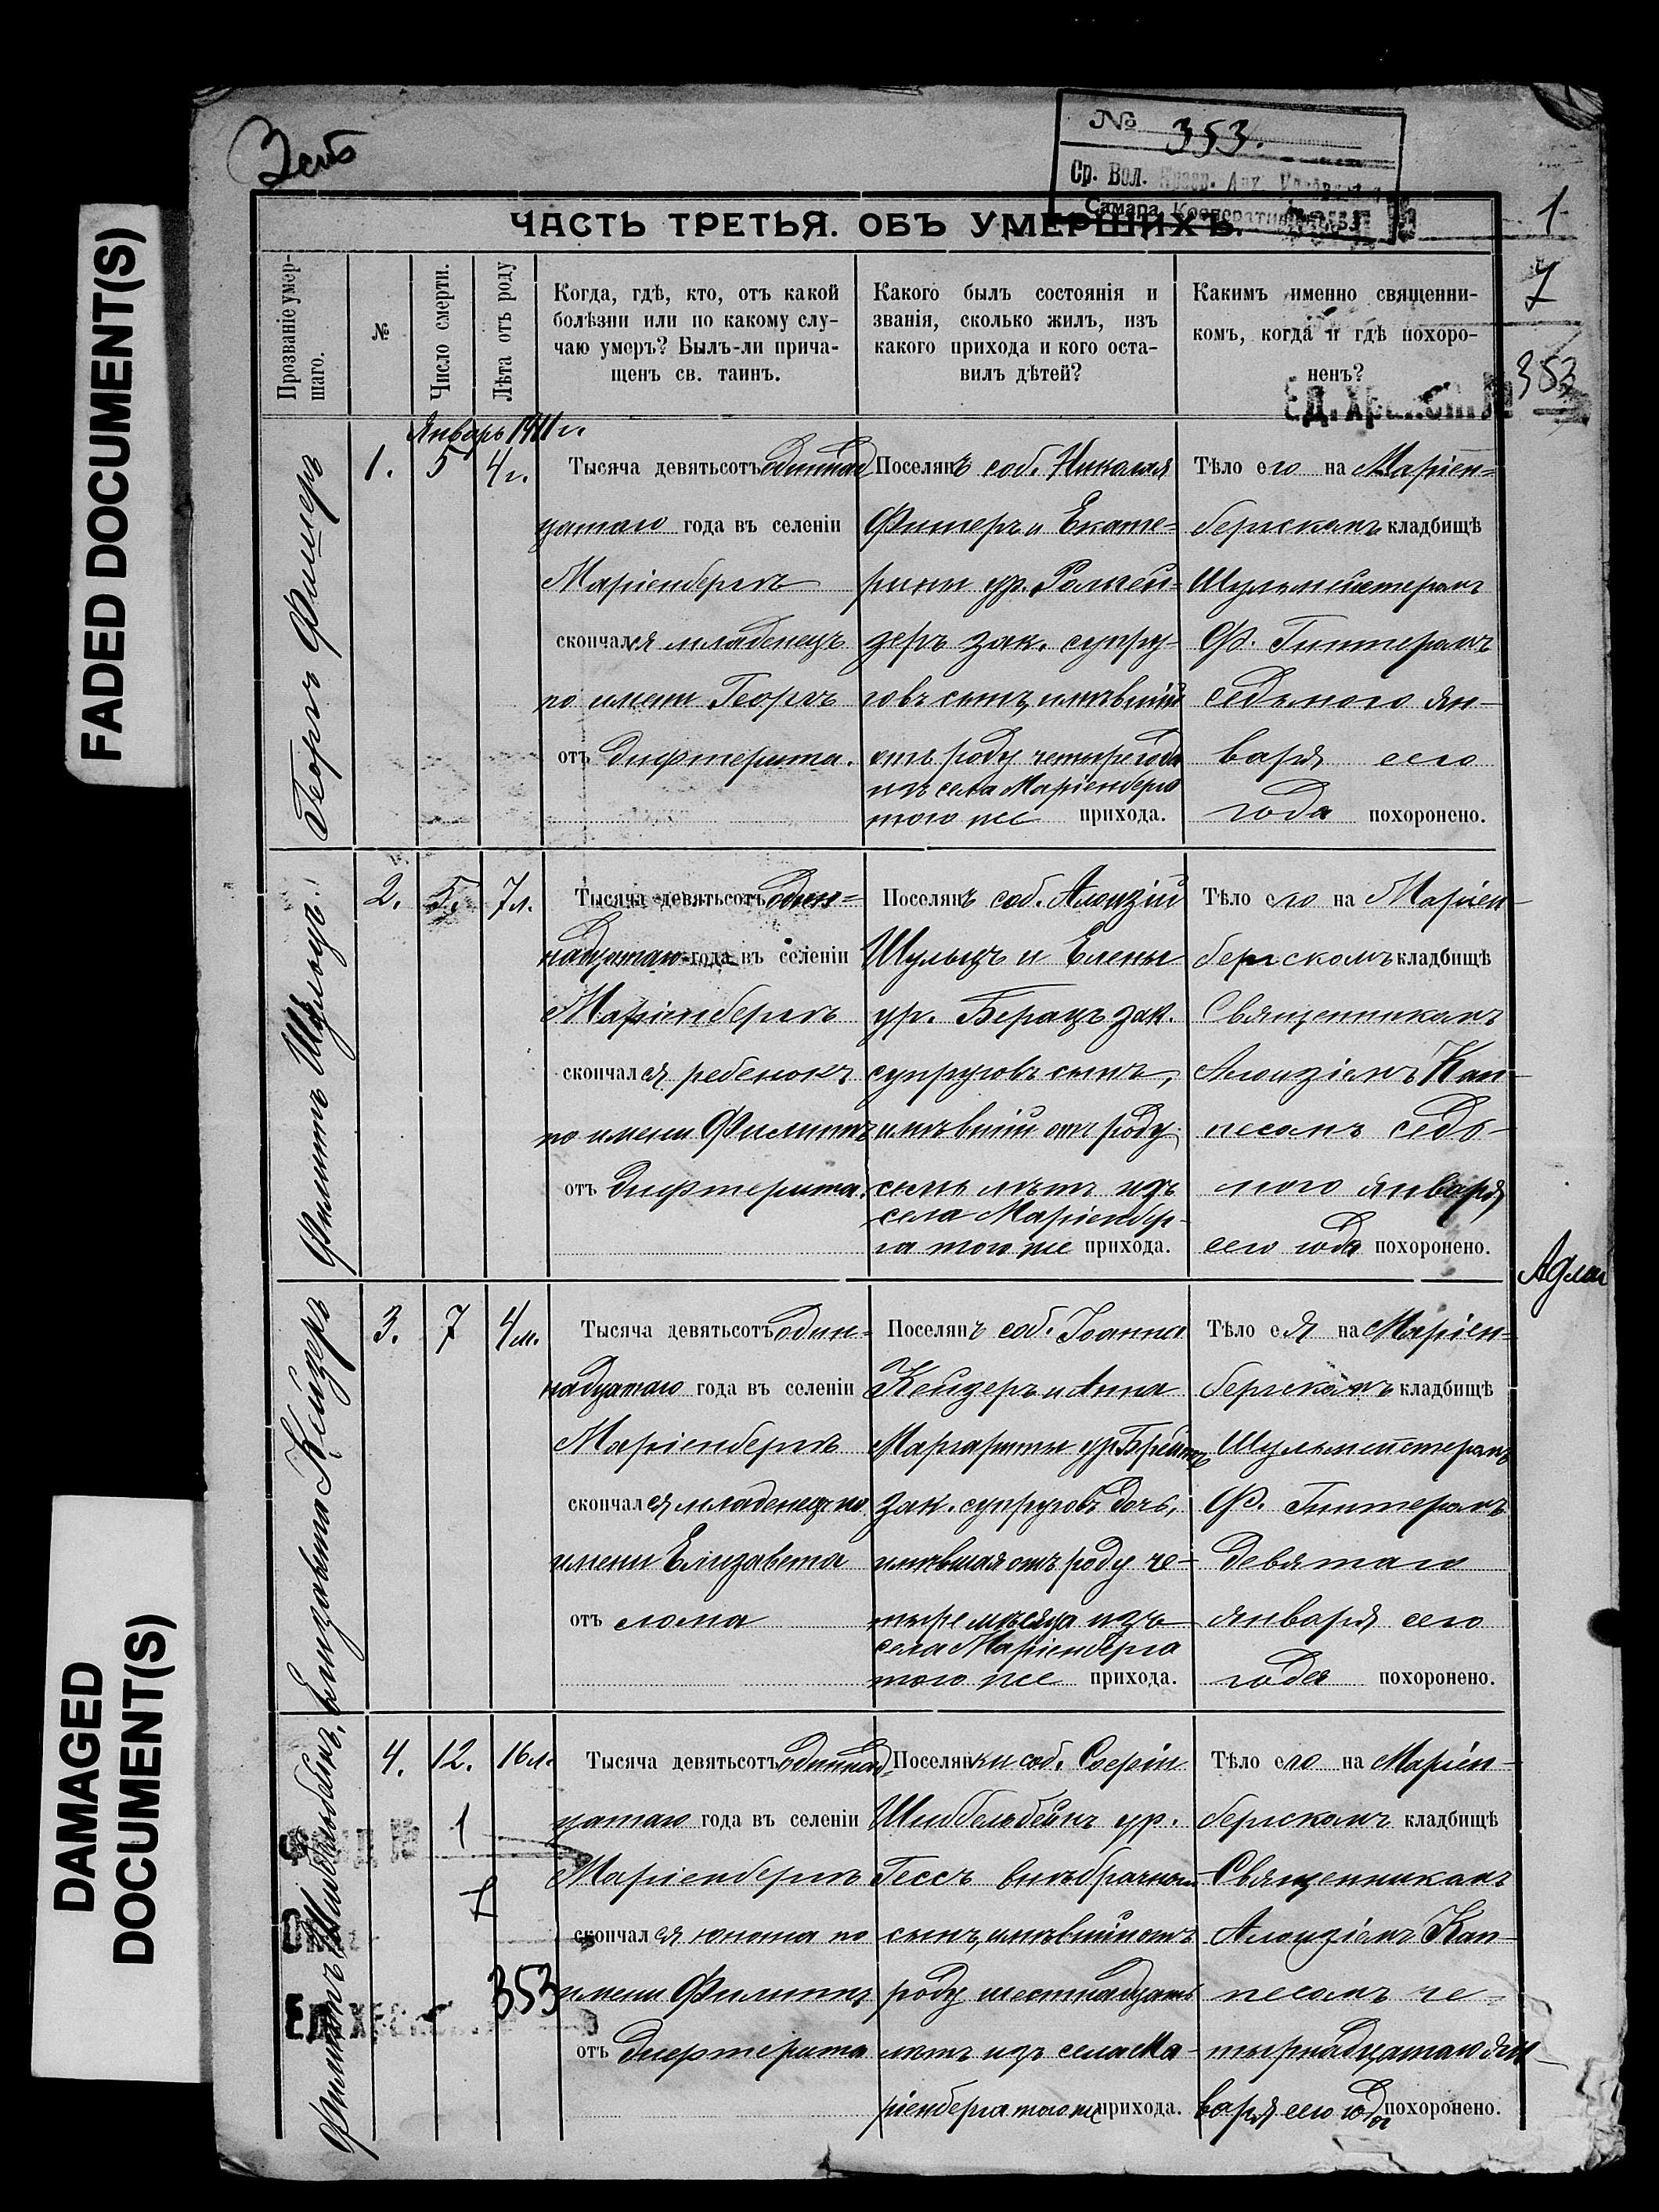 FADED DOCUMENT(S)
DAMAGED
DOCUMENT(S)
№ 353.
Ср. Вол.
Самара
ЧАСТЬ ТРЕТЬЯ. ОБЪ УМЕРШИХЪ.
1
7
353
Прозваніе умер-
шаго.
№
Число смерти.
Лѣта отъ роду
Когда, гдѣ, кто, отъ какой
болѣзни или по какому слу-
чаю умеръ? Былъ-ли прича-
щенъ св. таинъ.
Какого былъ состоянія и
званія, сколько жилъ, изъ
какого прихода и кого оста-
вилъ дѣтей?
Какимъ именно священни-
комъ, когда и гдѣ похоро-
ненъ?
Январь 1911 г.
Георгъ Фишеръ
1.
5
4 г.
Тысяча девятьсотъ одиннад
цатаго года въ селеніи
Маріенбергъ
скончался младенецъ
по имени Георгъ
отъ дифтерита.
Поселянъ соб. Николая
Фишеръ и Екате-
рины ур.
зак. супру-
говъ сынъ, имѣвшій
отъ роду четыре года
изъ села Маріенберга
того же прихода.
Тѣло его на Маріен-
бергскомъ кладбищѣ
Шульмейстеромъ
Ф. Гиттеромъ
седьмого ян-
варя сего
года похоронено.
Филиппъ Шульцъ.
2.
5.
7 л.
Тысяча девятьсотъ один-
надцатаго года въ селеніи
Маріенбергъ
скончался ребенокъ
по имени Филиппъ
отъ дифтерита.
Поселянъ соб. Алоизій
Шульцъ и Елены
ур. Берацъ зак.
супруговъ сынъ,
имѣвшій отъ роду
семь лѣтъ изъ
села Маріенбер-
га того же прихода.
Тѣло его на Маріен-
бергскомъ кладбищѣ
Священникомъ
Алоизіемъ Кап-
песомъ седь-
мого января
сего года похоронено.
Елизавета Кейзеръ
3.
7
4 м.
Тысяча девятьсотъ один-
надцатаго года въ селеніи
Маріенбергъ
скончался младенецъ по
имени Елизавета
отъ лома
Поселянъ соб. Іоанна
Кейзеръ и Анна
Маргариты ур.
зак. супруговъ дочь,
имѣвшая отъ роду че-
тыре мѣсяца изъ
села Маріенберга
того же прихода.
Тѣло ея на Маріен-
бергскомъ кладбищѣ
Шульмейстеромъ
Ф. Гиттеромъ
девятаго
января сего
года похоронено.
Филиппъ Шиббельбейнъ,
4.
12.
16 л.
1
7
353
Тысяча девятьсотъ одиннад
цатаго года въ селеніи
Маріенбергъ
скончался юноша по
имени Филиппъ
отъ дифтерита
Поселянки соб. Софіи
Шиббельбейнъ ур.
Гессъ внѣбрачный
сынъ, имѣвшій отъ
роду шестнадцать
лѣтъ изъ села Ма-
ріенберга того же прихода.
Тѣло его на Маріен-
бергскомъ кладбищѣ
Священникомъ
Алоизіемъ Кап-
песомъ че-
тырнадцатаго ян-
варя сего года похоронено.